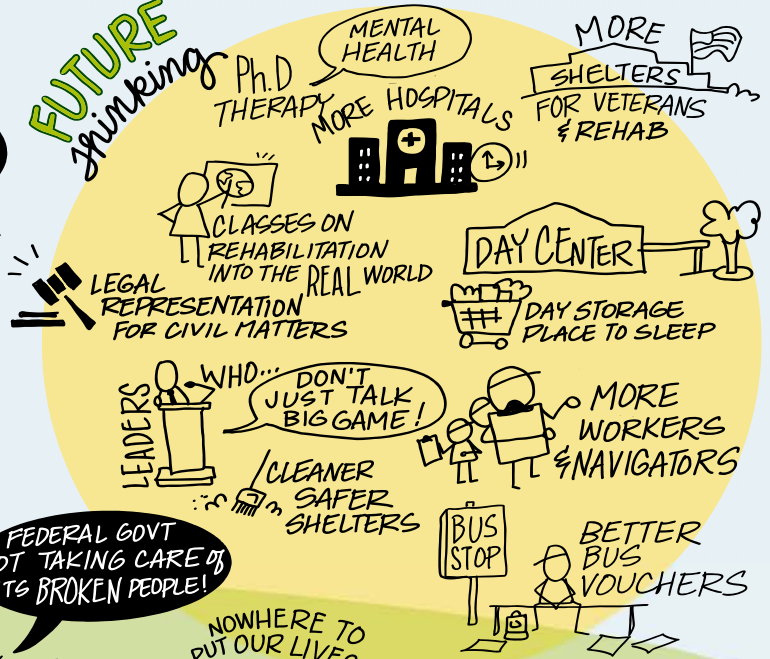 FUTURE
thinking
Ph.D
THERAPY
MENTAL
HEALTH
MORE HOSPITALS
MORE
SHELTERS
FOR VETERANS
& REHAB
CLASSES ON
REHABILITATION
INTO THE REAL WORLD
DAY CENTER
LEGAL
REPRESENTATION
FOR CIVIL MATTERS
DAY STORAGE
PLACE TO SLEEP
LEADERS
WHO...
DON'T
JUST TALK
BIG GAME!
MORE
WORKERS
& NAVIGATORS
CLEANER
SAFER
SHELTERS
BUS
STOP
BETTER
BUS
VOUCHERS
FEDERAL GOVT
TAKING CARE of
BROKEN PEOPLE!
NOWHERE TO
PUT OUR LIVES